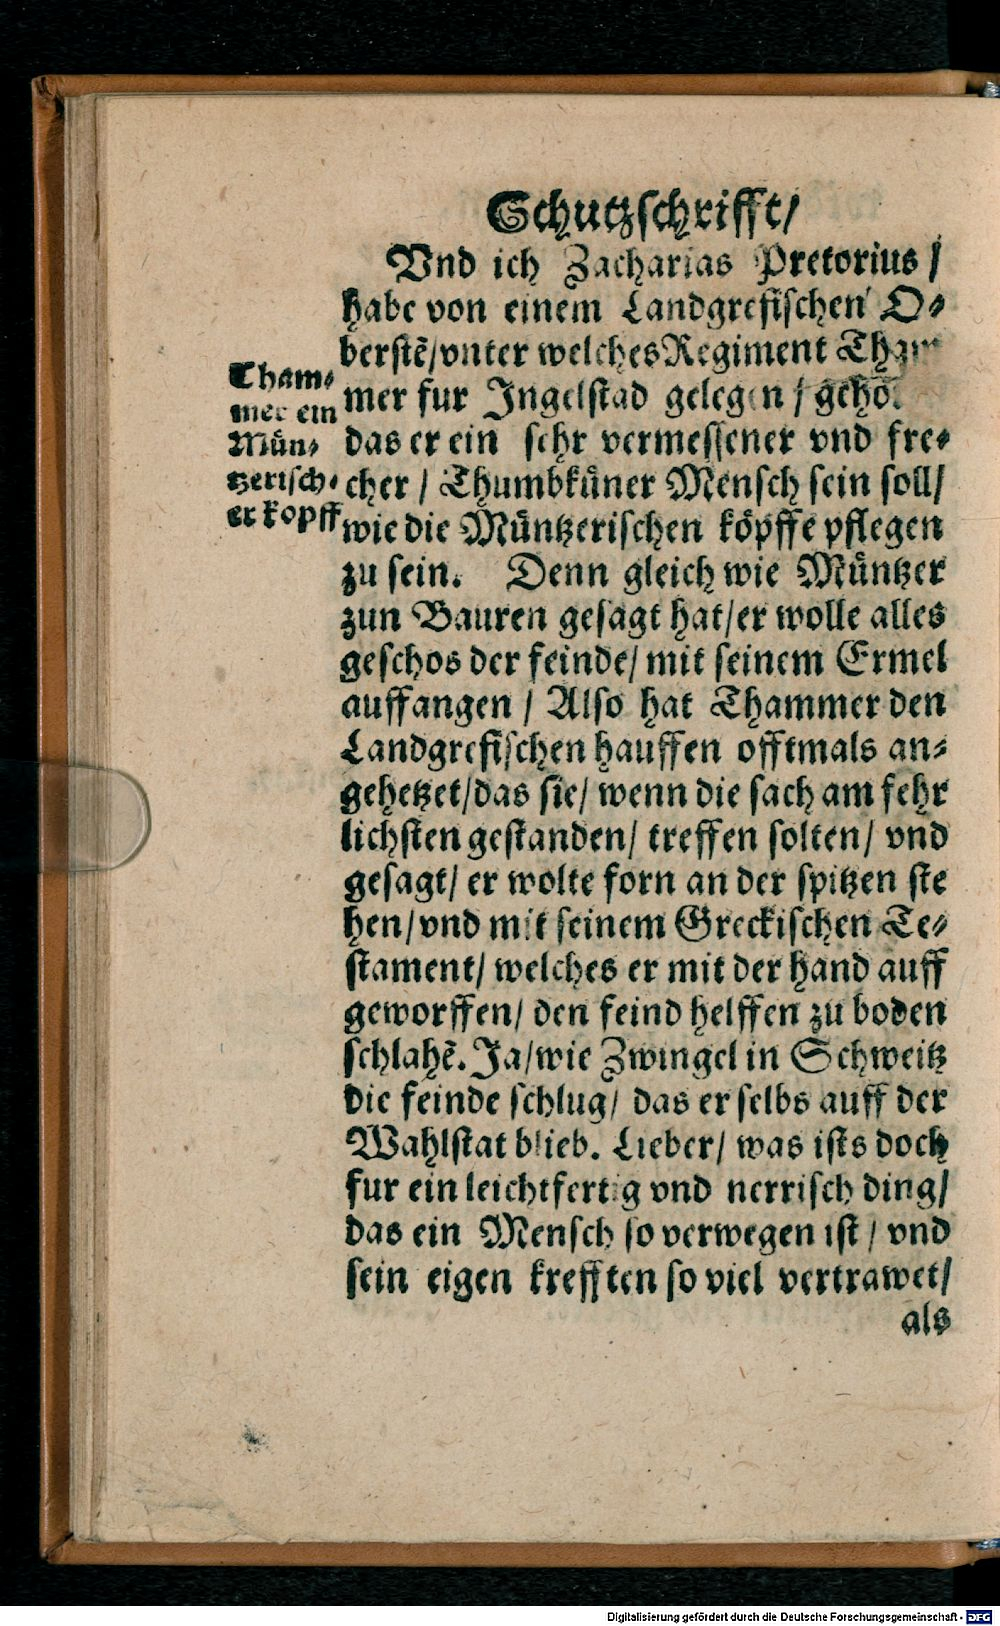 Schutzschrifft/
Vnd ich Zacharias Pretorius/
habe von einem Landgrefischen O⸗
berstẽ/vnter welches Regiment Tham
mer fur Ingelstad gelegen/
das er ein sehr vermessener vnd fre⸗
cher/ Thumbküner Mensch sein soll/
wie die Müntzerischen köpffe pflegen
zu sein. Denn gleich wie Müntzer
zun Bauren gesagt hat/er wolle alles
geschos der feinde/ mit seinem Ermel
auffangen/ Also hat Thammer den
Landgrefischen hauffen offtmals an⸗
gehetzet/das sie/ wenn die sach am fehr
lichsten gestanden/ treffen solten/ vnd
gesagt/ er wolte forn an der spitzen ste
hen/vnd mit seinem Greckischen Te⸗
stament/ welches er mit der hand auff
geworffen/ den feind helffen zu boden
schlahẽ. Ja/wie Zwingel in Schweitz
die feinde schlug/ das er selbs auff der
Wahlstat blieb. Lieber/ was ists doch
fur ein leichtfertig vnd nerrisch ding/
das ein Mensch so verwegen ist/ vnd
sein eigen krefften so viel vertrawet/
als
Tham⸗
mer ein
Mün⸗
tzerisch⸗
er kopff
Digitalisierung gefördert durch die Deutsche Forschungsgemeinschaft - DFG